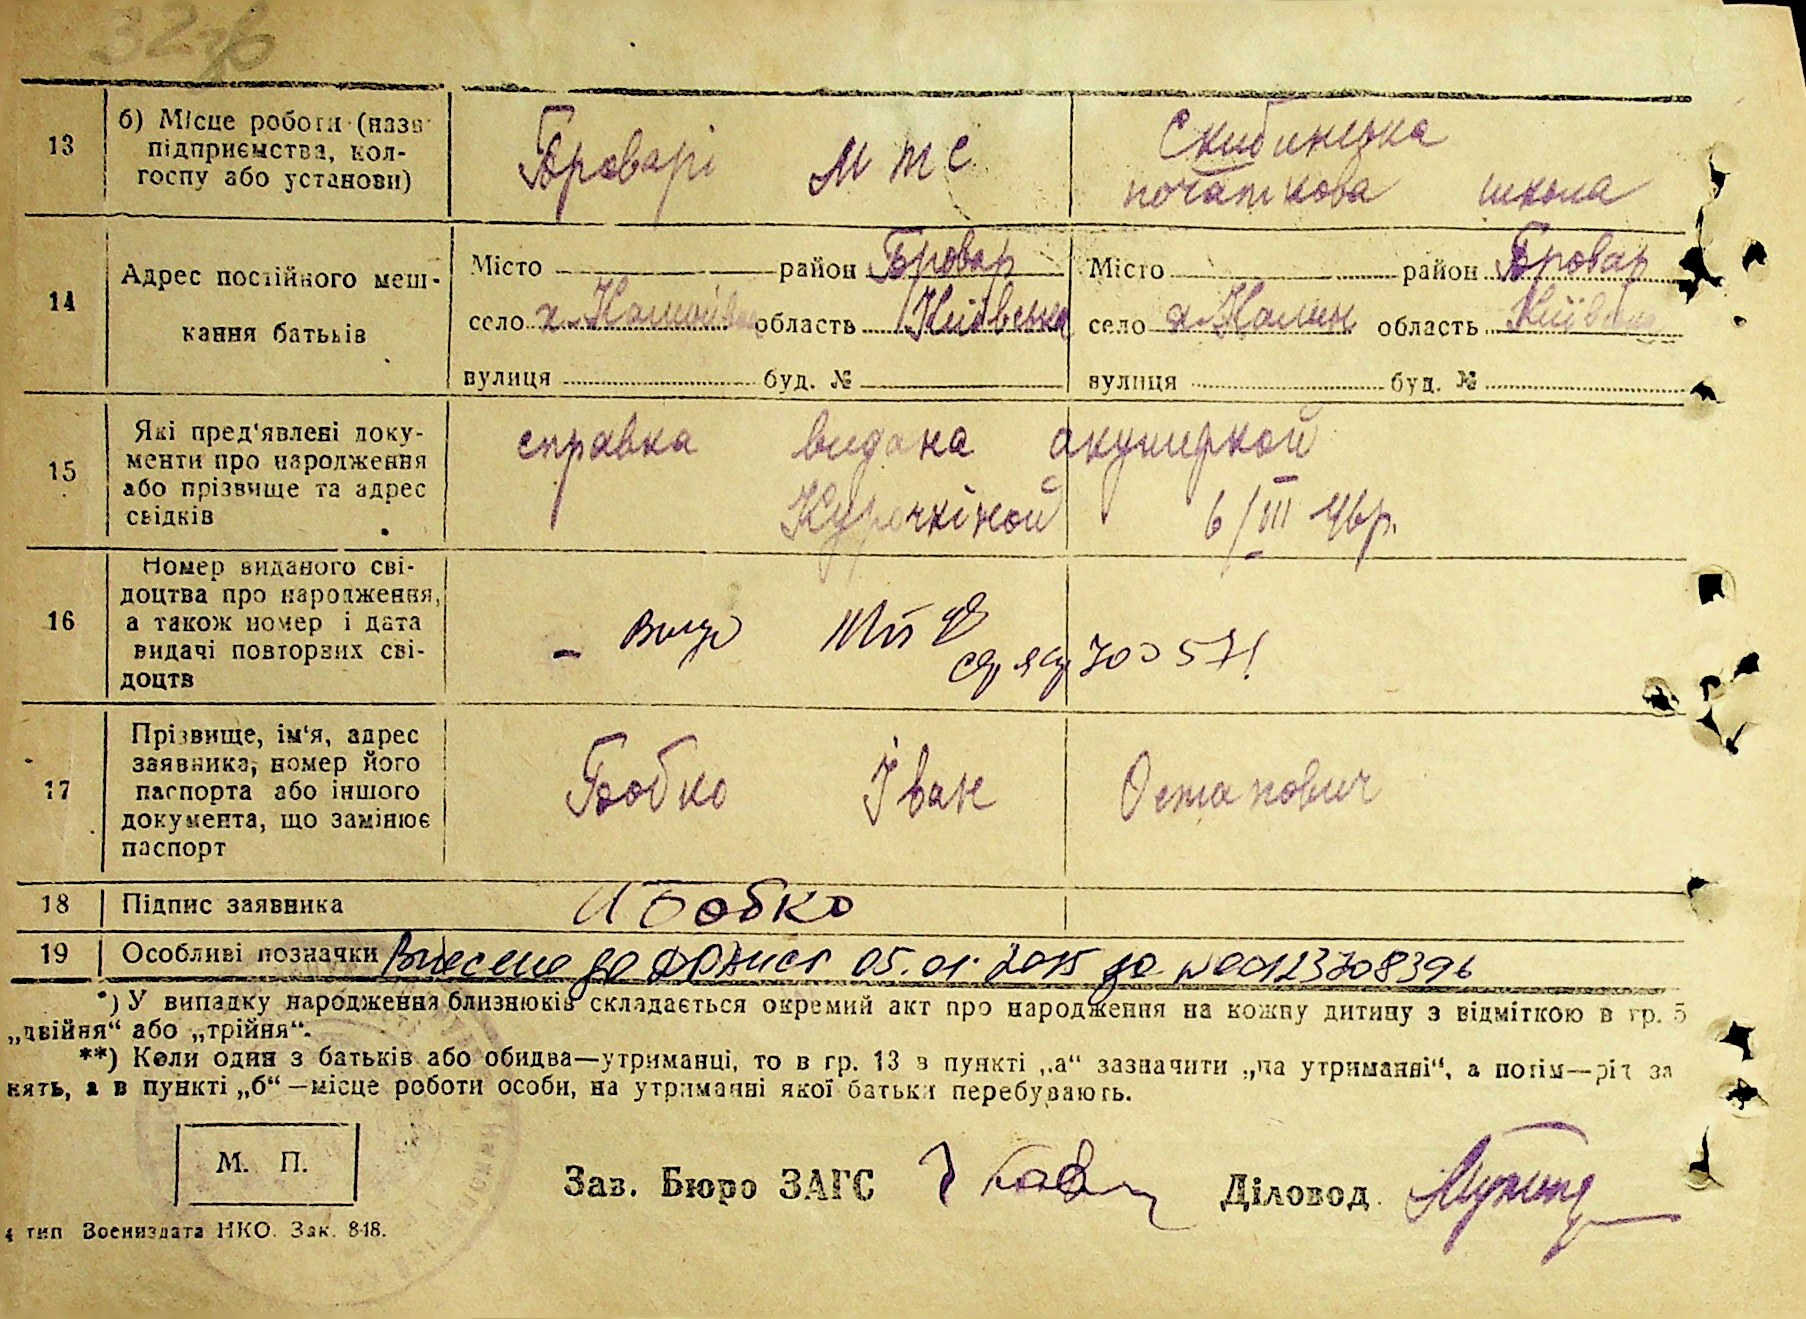 32
13
б) Місце роботи (назв
підприємства, кол-
госпу або установи)
Броварі М Т С
Скибинська
початкова школа
14
Адрес постійного меш-
кання батьків
Місто район Бровар
село х. область Київська
вулиця буд. №
Місто район Бровар
село х. Калин область Київ
вулиця буд. №
15
Які пред'явлені доку-
менти про народження
або прізвище та адрес
свідків
справка видана акушеркой
Курочкіной 6/III 46р.
16
Номер виданого сві-
доцтва про народження,
а також номер і дата
видачі повторних сві-
доцтв
17
Прізвище, ім'я, адрес
заявника, номер його
паспорта або іншого
документа, що замінює
паспорт
Бобко Іван Остапович
18 Підпис заявника И Бобко
19 Особливі позначки Внесено до 05.01.2015 за №00123708396
*) У випадку народження близнюків складається окремий акт про народження на кожну дитину з відміткою в гр. 5
„двійня“ або „трійня“.
**) Коли один з батьків або обидва—утриманці, то в гр. 13 в пункті „а“ зазначити „на утриманні“, а потім—рід за
нять, а в пункті „б“—місце роботи особи, на утриманні якої батьки перебувають.
М. П.
Зав. Бюро ЗАГС
Діловод
4 тип Воениздата НКО. Зак. 848.